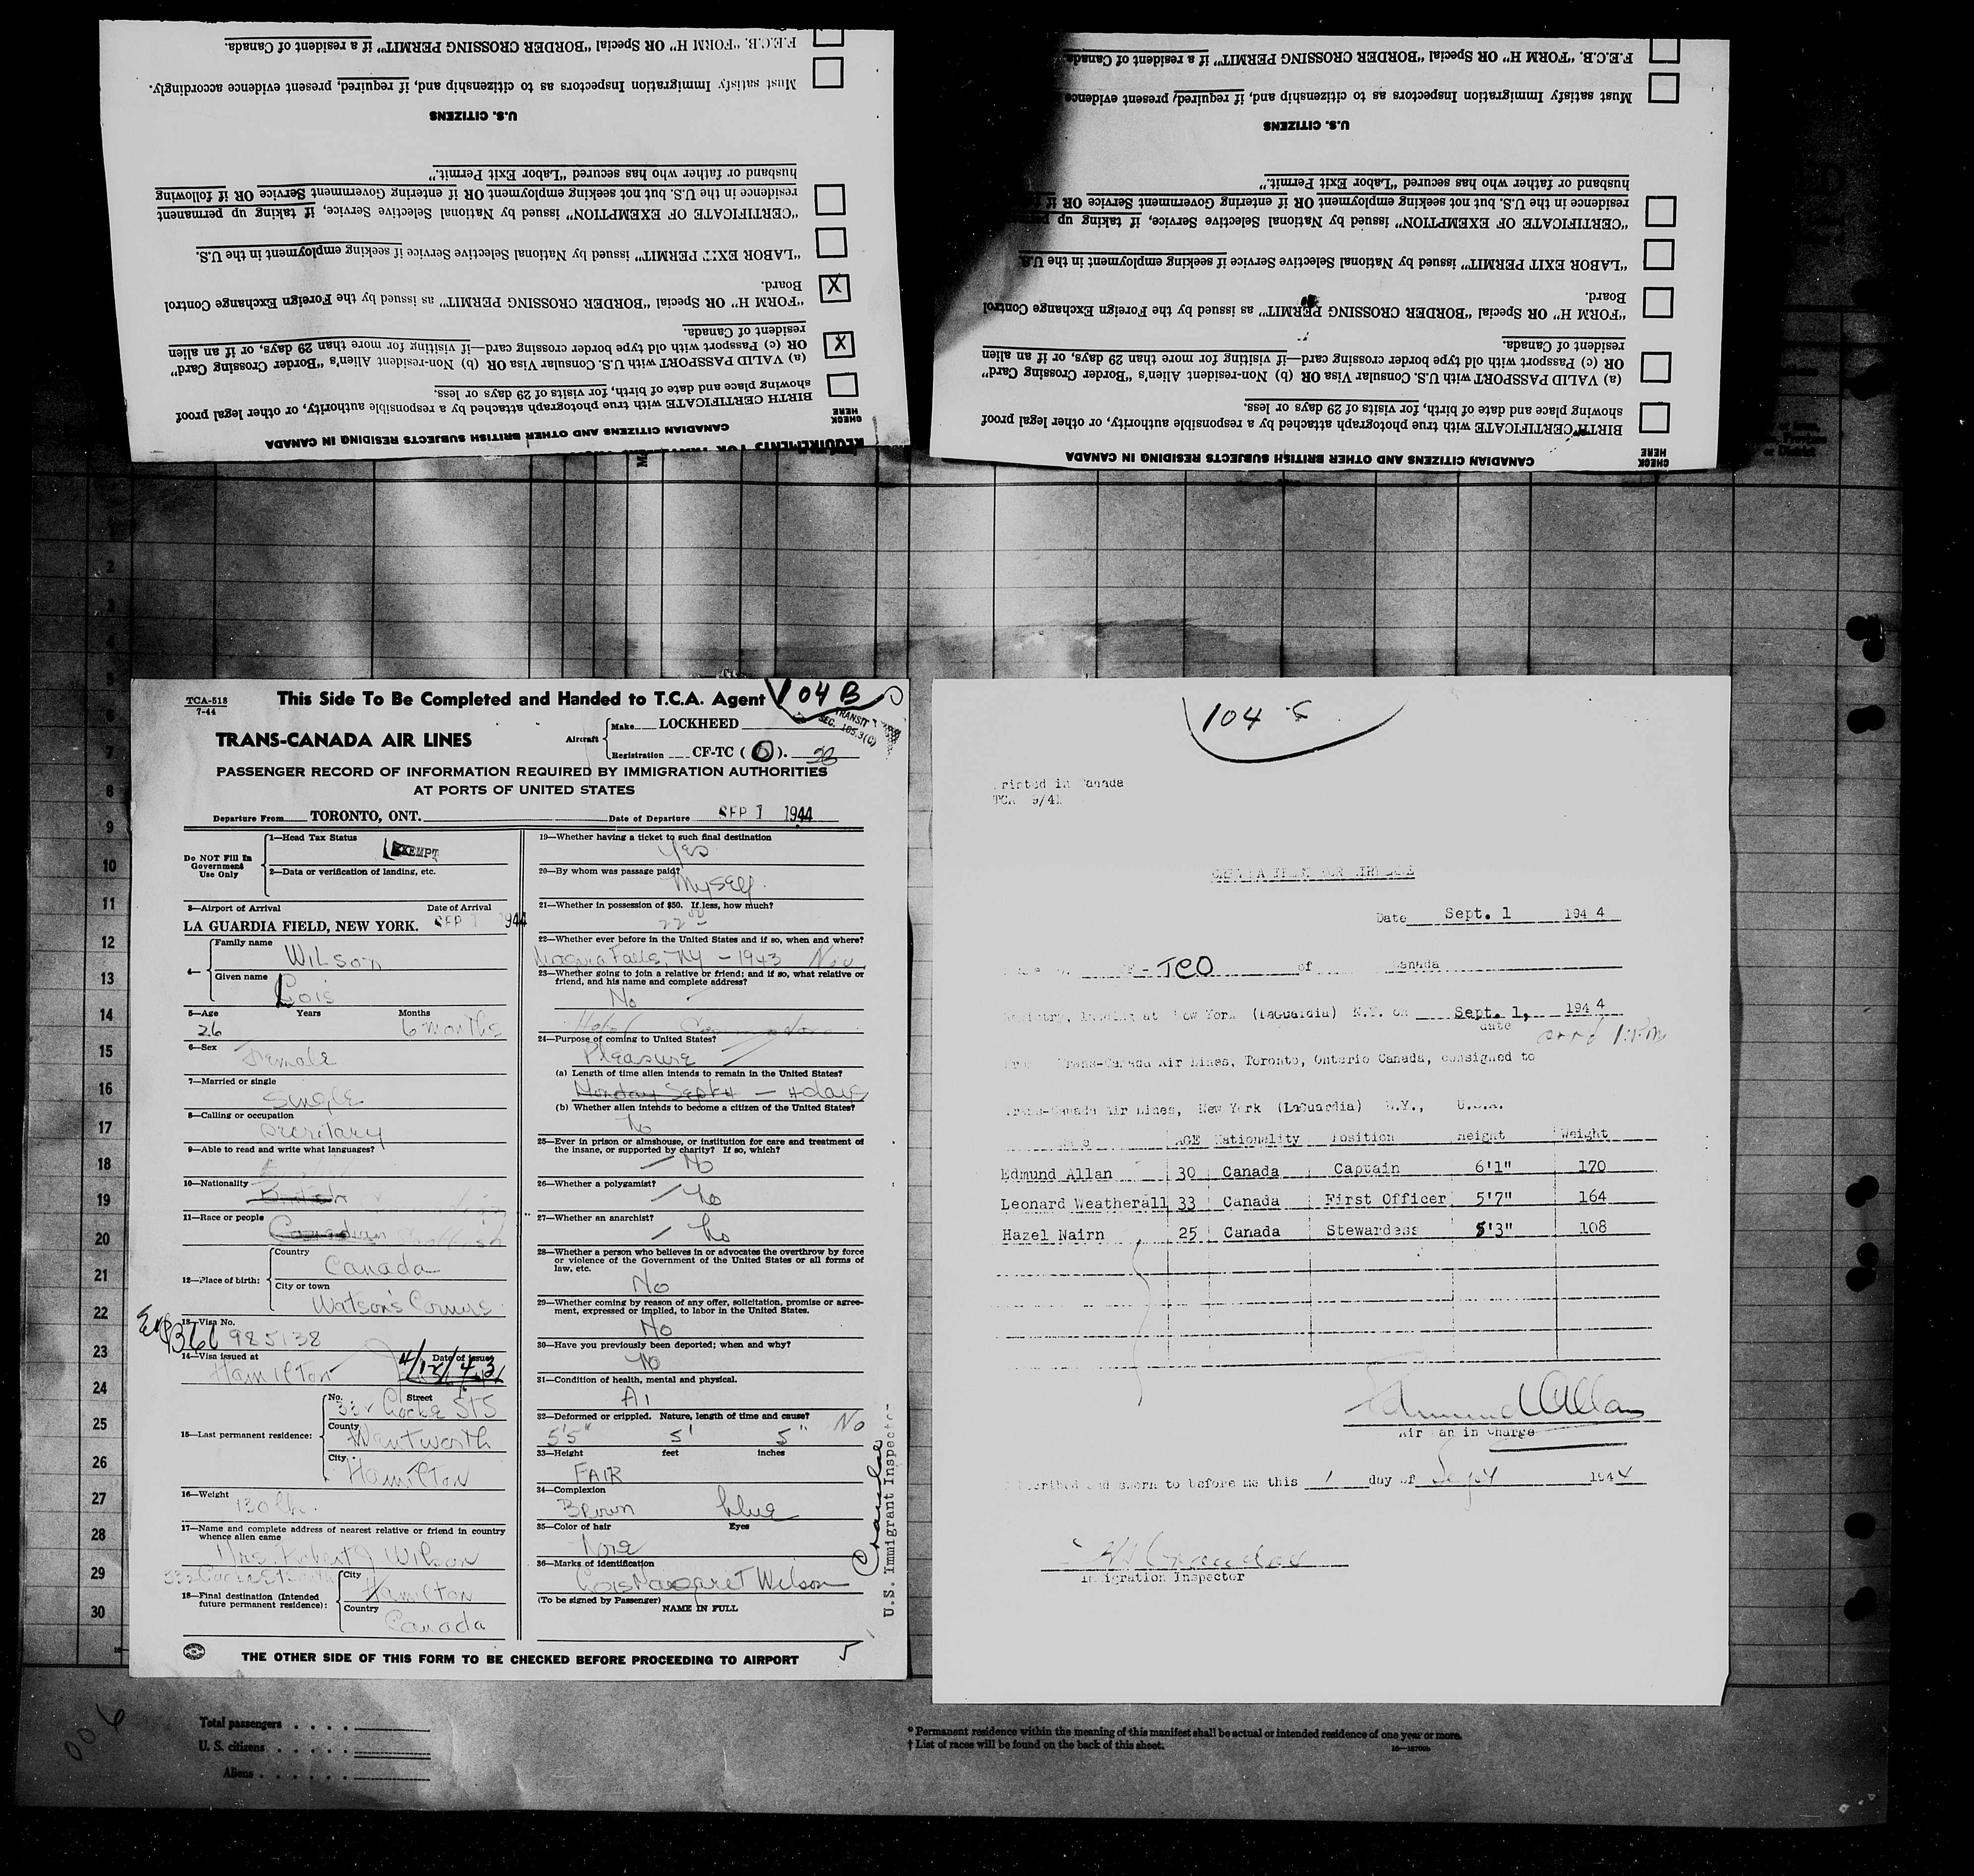 F.E.C.B. "FORM H" OR Special "BORDER CROSSING PERMIT" if a resident of Canada.
Must satisfy Immigration Inspectors as to citizenship and, if required, present evidence accordingly.
U.S. CITIZENS
husband or father who has secured "Labor Exit Permit."
residence in the U.S. but not seeking employment OR if entering Government Service OR if following
"CERTIFICATE OF EXEMPTION" issued by National Selective Service, if taking up permanent
"LABOR EXIT PERMIT" issued by National Selective Service if seeking employment in the U.S.
Board.
"FORM H" OR Special "BORDER CROSSING PERMIT" as issued by the Foreign Exchange Control
X
resident of Canada.
OR (c) Passport with old type border crossing card—if visiting for more than 29 days, or if an alien
(a) VALID PASSPORT with U.S. Consular Visa OR (b) Non-resident Alien's "Border Crossing Card"
X
showing place and date of birth, for visits of 29 days or less.
BIRTH CERTIFICATE with true photograph attached by a responsible authority, or other legal proof
CHECK HERE
CANADIAN CITIZENS AND OTHER BRITISH SUBJECTS RESIDING IN CANADA
F.E.C.B. "FORM H" OR Special "BORDER CROSSING PERMIT" if a resident of Canada
Must satisfy Immigration Inspectors as to citizenship and, if required, present evidence
U.S. CITIZENS
husband or father who has secured "Labor Exit Permit."
residence in the U.S. but not seeking employment OR if entering Government Service OR if
"CERTIFICATE OF EXEMPTION" issued by National Selective Service, if taking up
"LABOR EXIT PERMIT" issued by National Selective Service if seeking employment in the U.S.
Board.
"FORM H" OR Special "BORDER CROSSING PERMIT" as issued by the Foreign Exchange Control
resident of Canada.
OR (c) Passport with old type border crossing card—if visiting for more than 29 days, or if an alien
(a) VALID PASSPORT with U.S. Consular Visa OR (b) Non-resident Alien's "Border Crossing Card"
showing place and date of birth, for visits of 29 days or less.
BIRTH CERTIFICATE with true photograph attached by a responsible authority, or other legal proof
CHECK HERE
CANADIAN CITIZENS AND OTHER BRITISH SUBJECTS RESIDING IN CANADA
TCA-518
7-44
This Side To Be Completed and Handed to T.C.A. Agent
104 B
TRANSIT
SEC. 105.3(C)
TRANS-CANADA AIR LINES
Aircraft
Make LOCKHEED
Registration CF-TC ( O ).
PASSENGER RECORD OF INFORMATION REQUIRED BY IMMIGRATION AUTHORITIES
AT PORTS OF UNITED STATES
Departure From TORONTO, ONT. Date of Departure SEP 1 1944
Do NOT Fill In Government Use Only
1—Head Tax Status EXEMPT
2—Data or verification of landing, etc.
3—Airport of Arrival Date of Arrival
LA GUARDIA FIELD, NEW YORK. SEP 1 1944
4— Family name Wilson
Given name Lois
5—Age Years Months
26 6 months
6—Sex Female
7—Married or single
Single
8—Calling or occupation
Secretary
9—Able to read and write what languages?
10—Nationality British
11—Race or people Canadian Scottish
12—Place of birth: Country Canada
City or town Watson's Corners
13—Visa No. 985138
14—Visa issued at Date of issue
Hamilton 4/12/43
15—Last permanent residence: No. Street
County Wentworth
City Hamilton
16—Weight 130 lb.
17—Name and complete address of nearest relative or friend in country
whence alien came
Mrs. Robert J Wilson
18—Final destination (Intended
future permanent residence):
City Hamilton
Country Canada
19—Whether having a ticket to such final destination
Yes
20—By whom was passage paid?
Myself.
21—Whether in possession of $50. If less, how much?
22—Whether ever before in the United States and if so, when and where?
Niagara Falls, NY – 1943 Nov
23—Whether going to join a relative or friend; and if so, what relative or
friend, and his name and complete address?
No
Hotel Commodore
24—Purpose of coming to United States?
Pleasure
(a) Length of time alien intends to remain in the United States?
Monday Sept 4 — 4 days
(b) Whether alien intends to become a citizen of the United States?
No
25—Ever in prison or almshouse, or institution for care and treatment of
the insane, or supported by charity? If so, which?
No
26—Whether a polygamist? No
27—Whether an anarchist? No
28—Whether a person who believes in or advocates the overthrow by force
or violence of the Government of the United States or all forms of
law, etc.
No
29—Whether coming by reason of any offer, solicitation, promise or agree-
ment, expressed or implied, to labor in the United States.
No
30—Have you previously been deported; when and why?
No
31—Condition of health, mental and physical.
A1
32—Deformed or crippled. Nature, length of time and cause? No
5'5" 5' 5"
33—Height feet inches
FAIR
34—Complexion
Brown blue
35—Color of hair Eyes
None
36—Marks of identification
Lois Margaret Wilson
(To be signed by Passenger)
NAME IN FULL
U.S. Immigrant Inspector
THE OTHER SIDE OF THIS FORM TO BE CHECKED BEFORE PROCEEDING TO AIRPORT
5
104
Printed in Canada
TCA 9/41
Date Sept. 1 1944
CF-TCO of Canada
Registry, landing at New York (LaGuardia) N.Y. on Sept. 1, 1944
date
From Trans-Canada Air Lines, Toronto, Ontario Canada, consigned to
Trans-Canada Air Lines, New York (LaGuardia) N.Y., U.S.A.
Name AGE Nationality Position Height Weight
Edmund Allan 30 Canada Captain 6'1" 170
Leonard Weatherall 33 Canada First Officer 5'7" 164
Hazel Nairn 25 Canada Stewardess 5'3" 108
Edmund Allan
Airman in Charge
Subscribed and sworn to before me this 1 day of Sept 1944
Immigration Inspector
2
3
4
5
6
7
8
9
10
11
12
13
14
15
16
17
18
19
20
21
22
23
24
25
26
27
28
29
30
006
Total passengers . . . .
U. S. citizens . . . . .
Aliens . . . . . .
* Permanent residence within the meaning of this manifest shall be actual or intended residence of one year or more.
† List of races will be found on the back of this sheet.